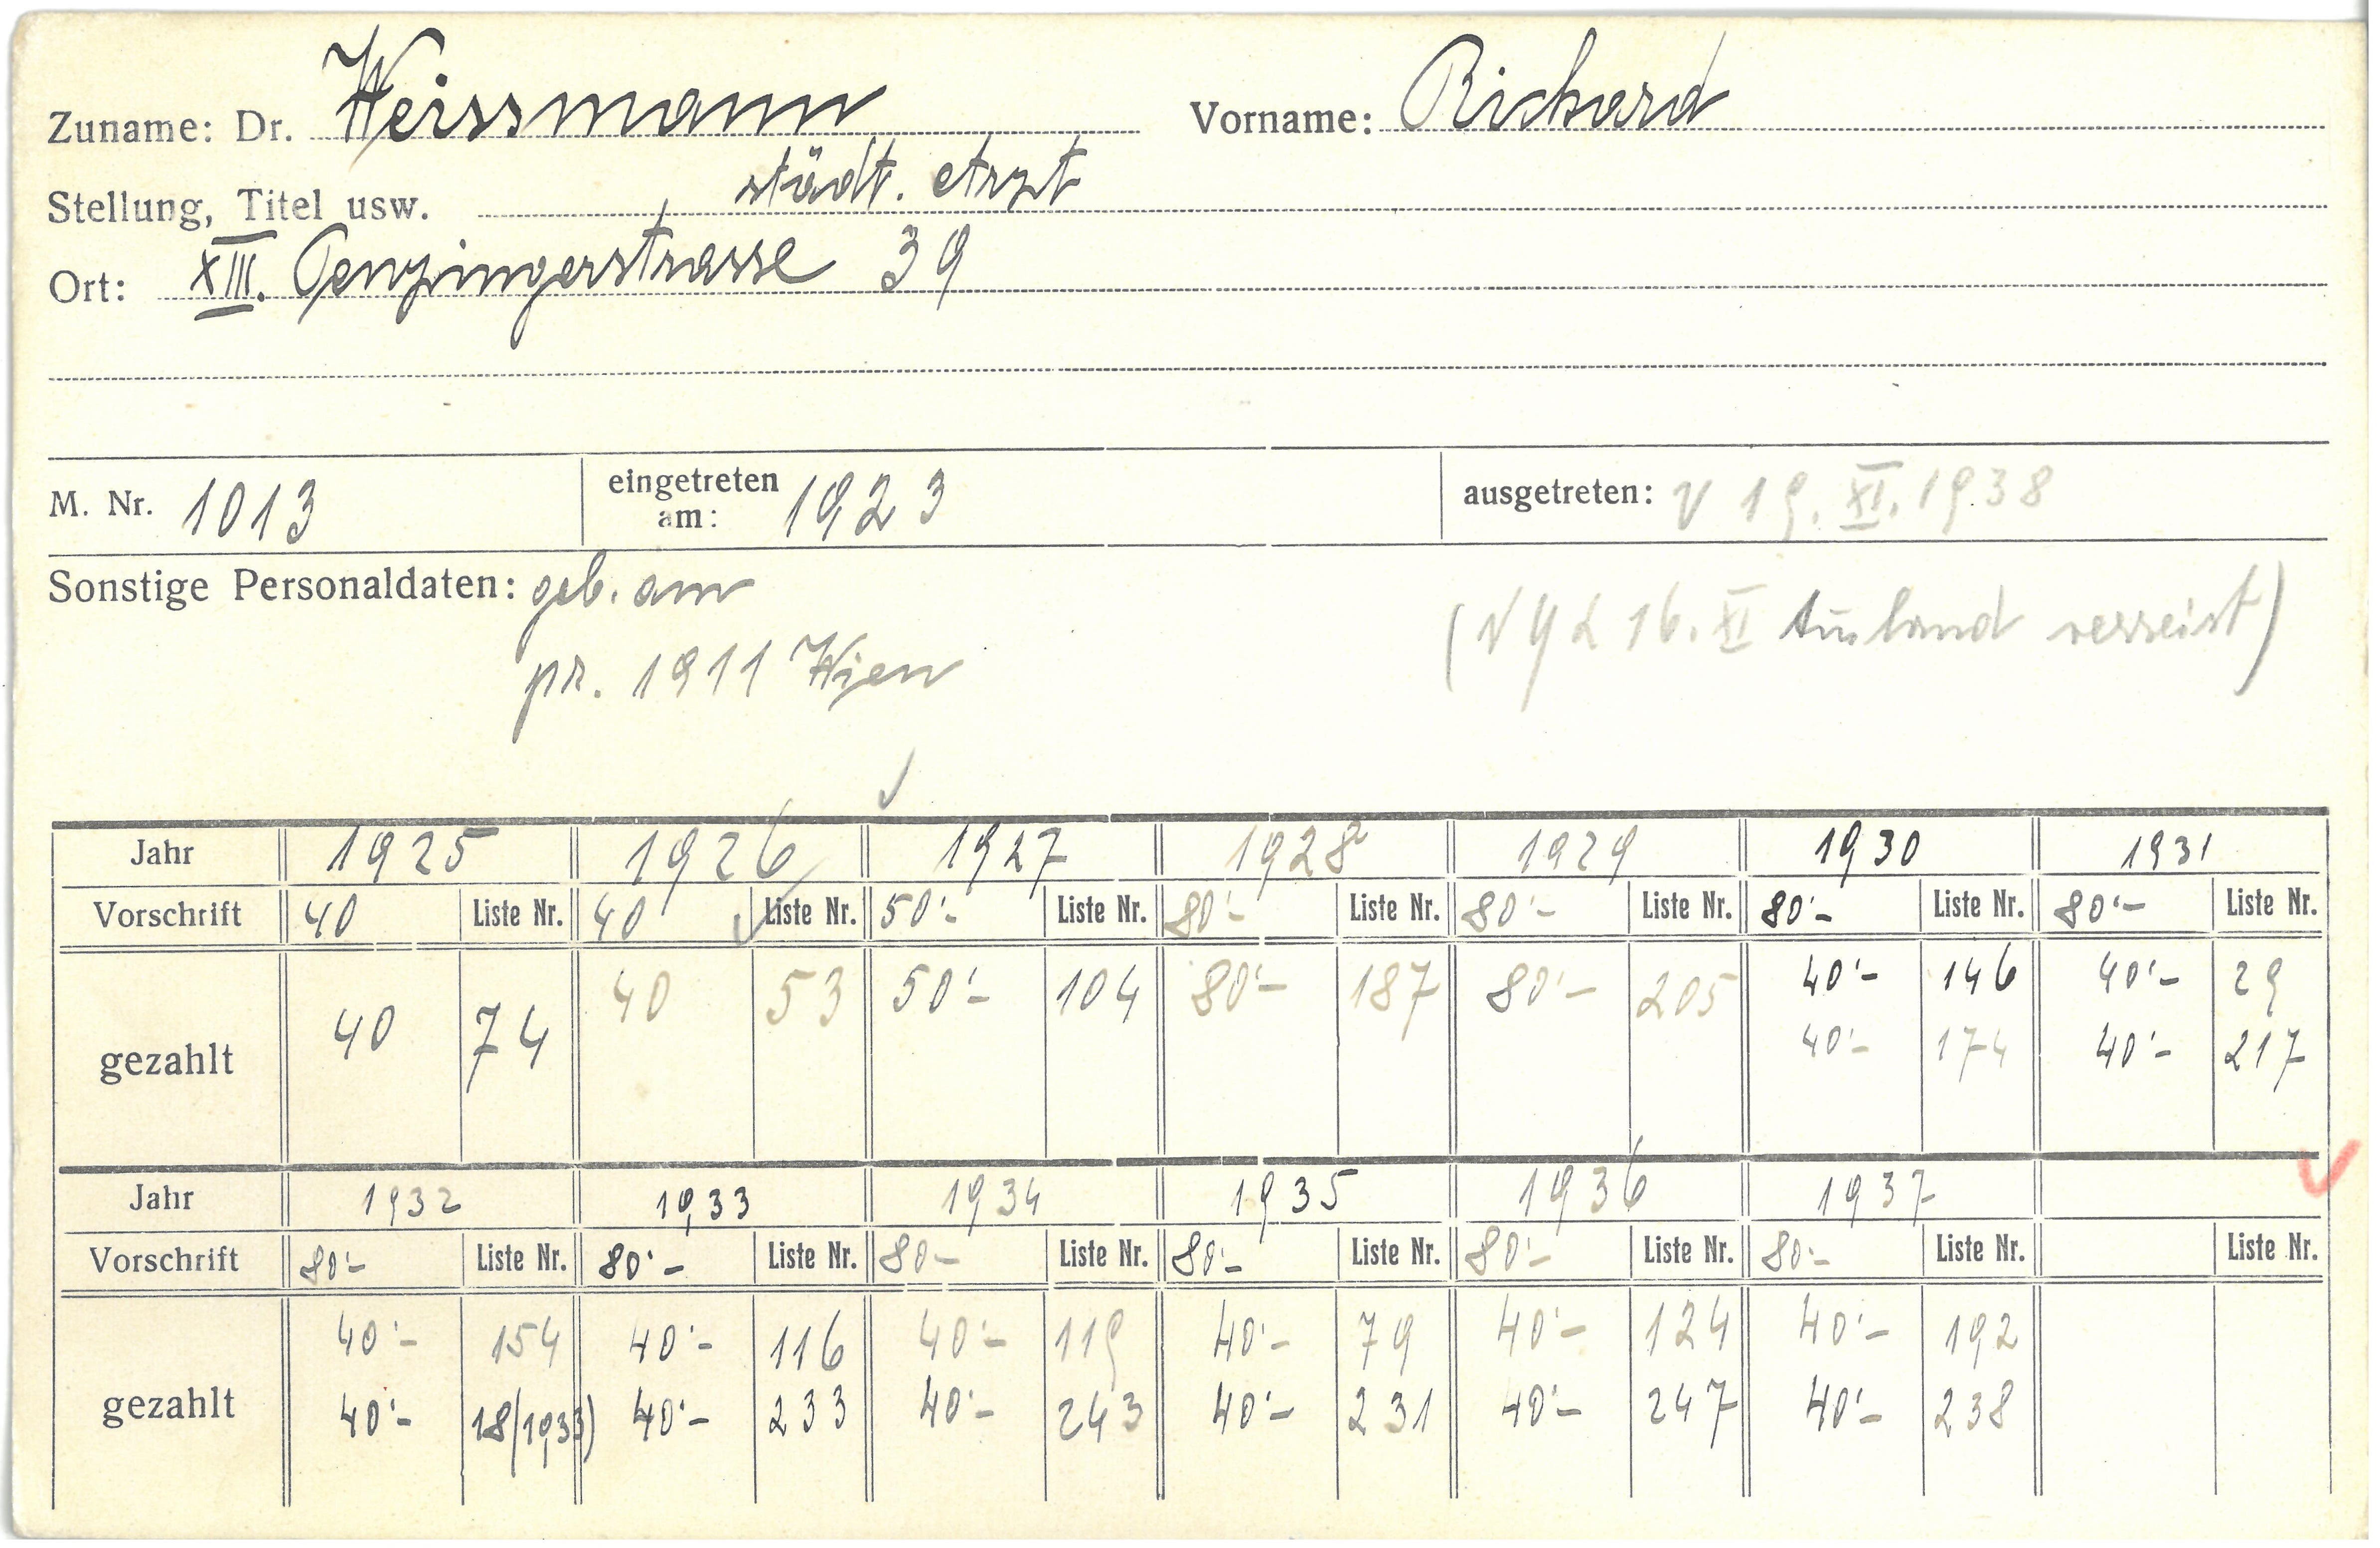 Zuname: Dr. Weissmann Vorname: Richard
Stellung, Titel usw. städt. Arzt
Ort: XIII. Penzingerstrasse 39
M. Nr. 1013 eingetreten am: 1923 ausgetreten: 19. XI. 1938
Sonstige Personaldaten: geb. am
(16. XI Ausland verreist)
pr. 1911 Wien
Jahr 1925 1926 1927 1928 1929 1930 1931
Vorschrift 40 Liste Nr. 40 Liste Nr. 50'- Liste Nr. 80'- Liste Nr. 80'- Liste Nr. 80'- Liste Nr. 80'- Liste Nr.
gezahlt 40 74 40 53 50'- 104 80'- 187 80'- 205 40'- 146 40'- 29
40'- 174 40'- 217
Jahr 1932 1933 1934 1935 1936 1937
Vorschrift 80'- Liste Nr. 80'- Liste Nr. 80'- Liste Nr. 80'- Liste Nr. 80'- Liste Nr. 80'- Liste Nr. Liste Nr.
gezahlt 40'- 154 40'- 116 40'- 119 40'- 79 40'- 124 40'- 192
40'- 18/1933) 40'- 233 40'- 243 40'- 231 40'- 247 40'- 238